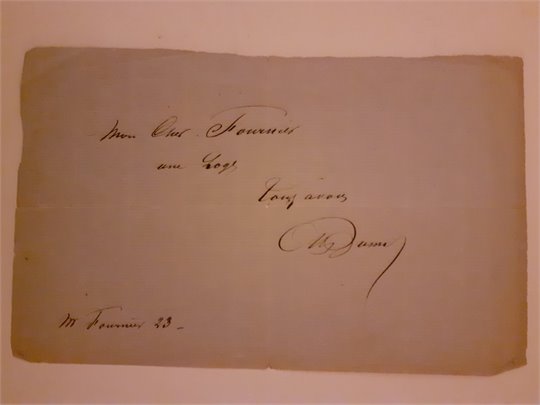 Mon Cher Fournier
une Loge
Tous à vous
Alex Dumas
Mr Fournier 23 -